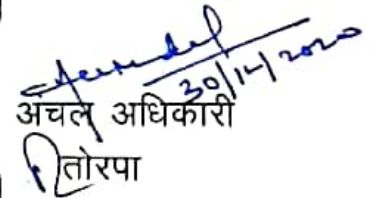 30/12/2020
अंचल अधिकारी
तोरपा